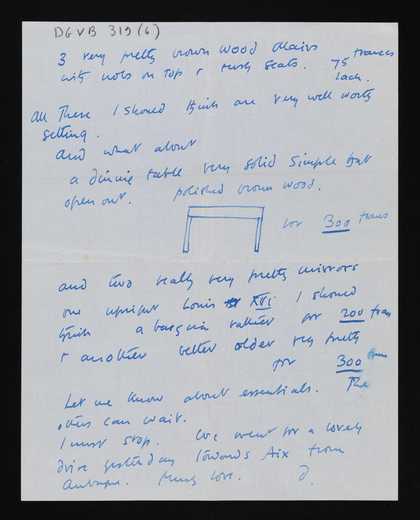 DGVB 319 (6)
3 very pretty brown wood chairs
with nobs on top & rush seats. 75 francs
each.
All these I should think are very well worth
getting.
And what about
a dining table very solid simple that
open out. polished brown wood.
for 300 francs
and two really very pretty mirrors
one upright Louis XVI I should
think a bargain rather for 200 francs
& another better older very pretty
for 300 francs
Let me know about essentials. The
others can wait.
I must stop. We went for a lovely
drive yesterday towards Aix from
Aubagne. Much love. D.